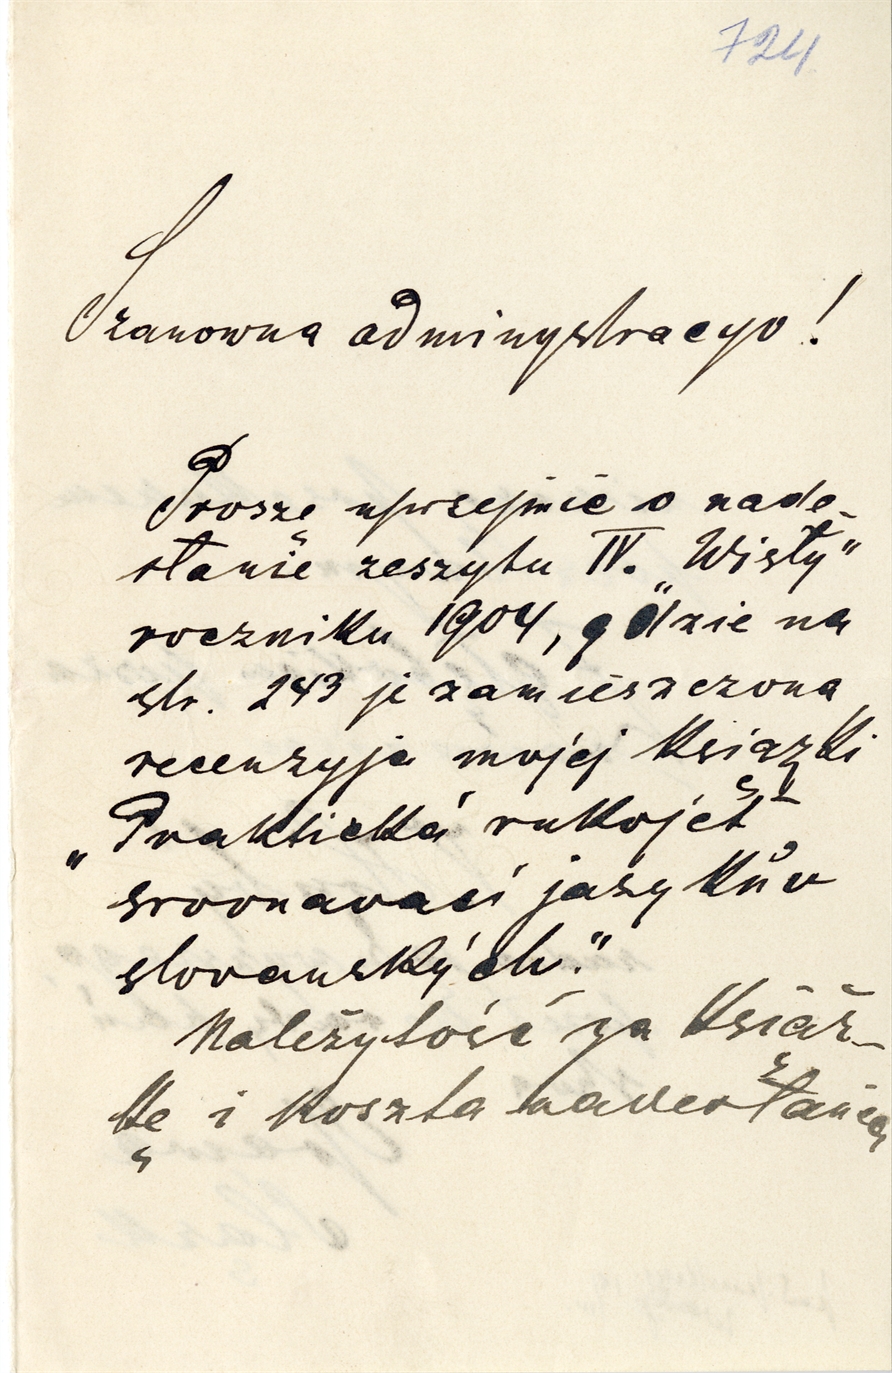 724
Szanowna administracyo!
Proszę uprzejmie o nade-
słanie zeszytu IV. „Wisły"
roczniku 1904, gdzie na
str. 243 je zamieszczona
recenzyja mojej książki
„Praktická rukojeť
srovnavací jazykův
slovanských."
Należytość za książ-
kę i koszta nadesłania